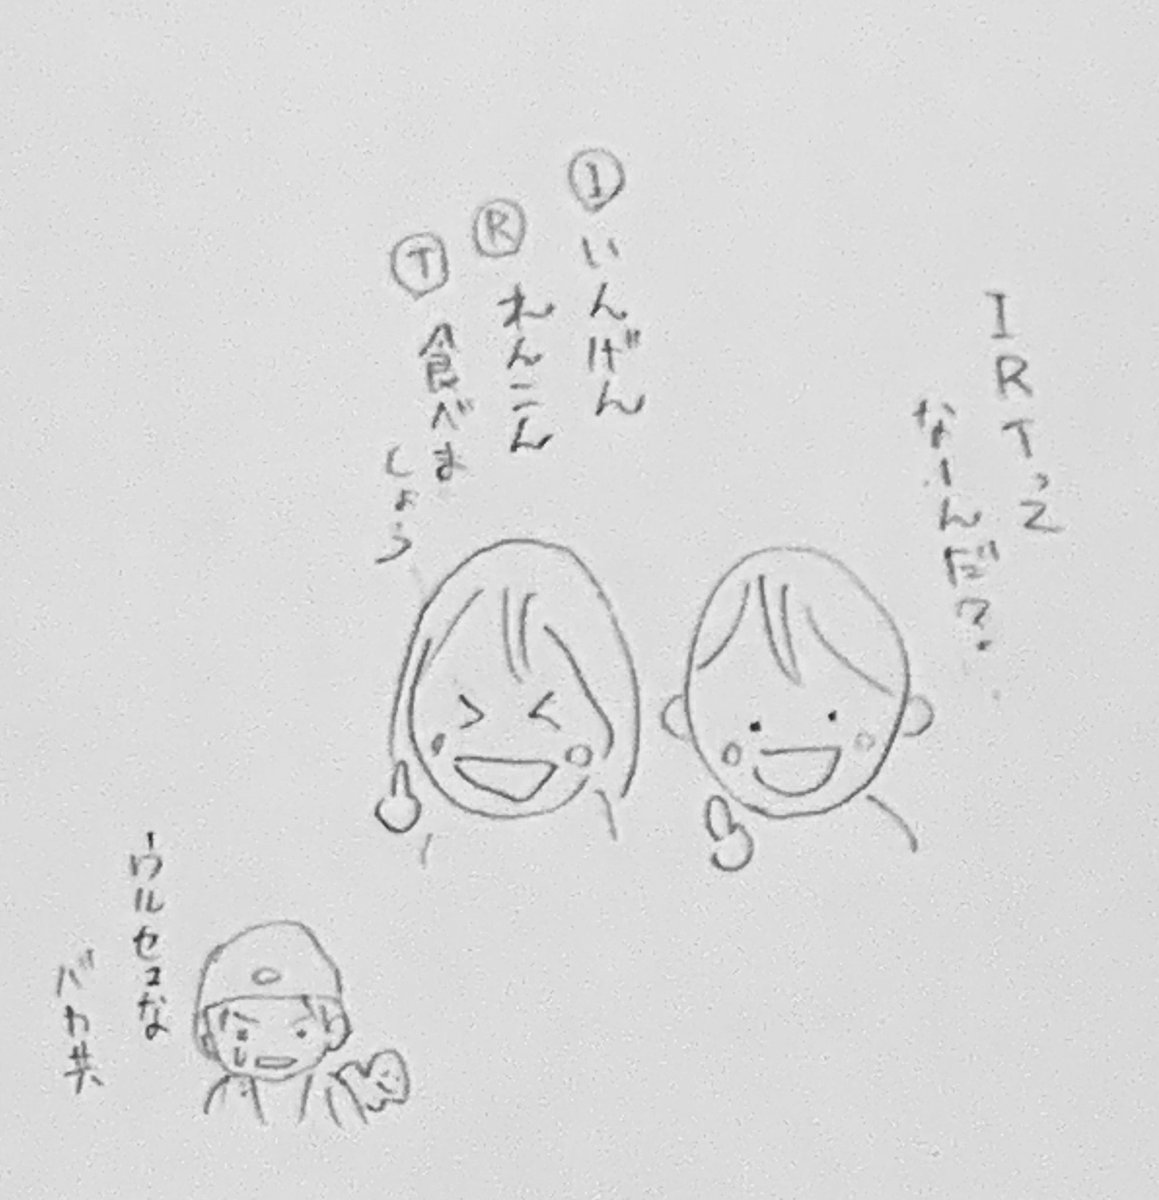 IRTって
なーんだ?
Ⓘいんげん
Ⓡれんこん
Ⓣ食べま
しょう
ウルセェな
バカ共